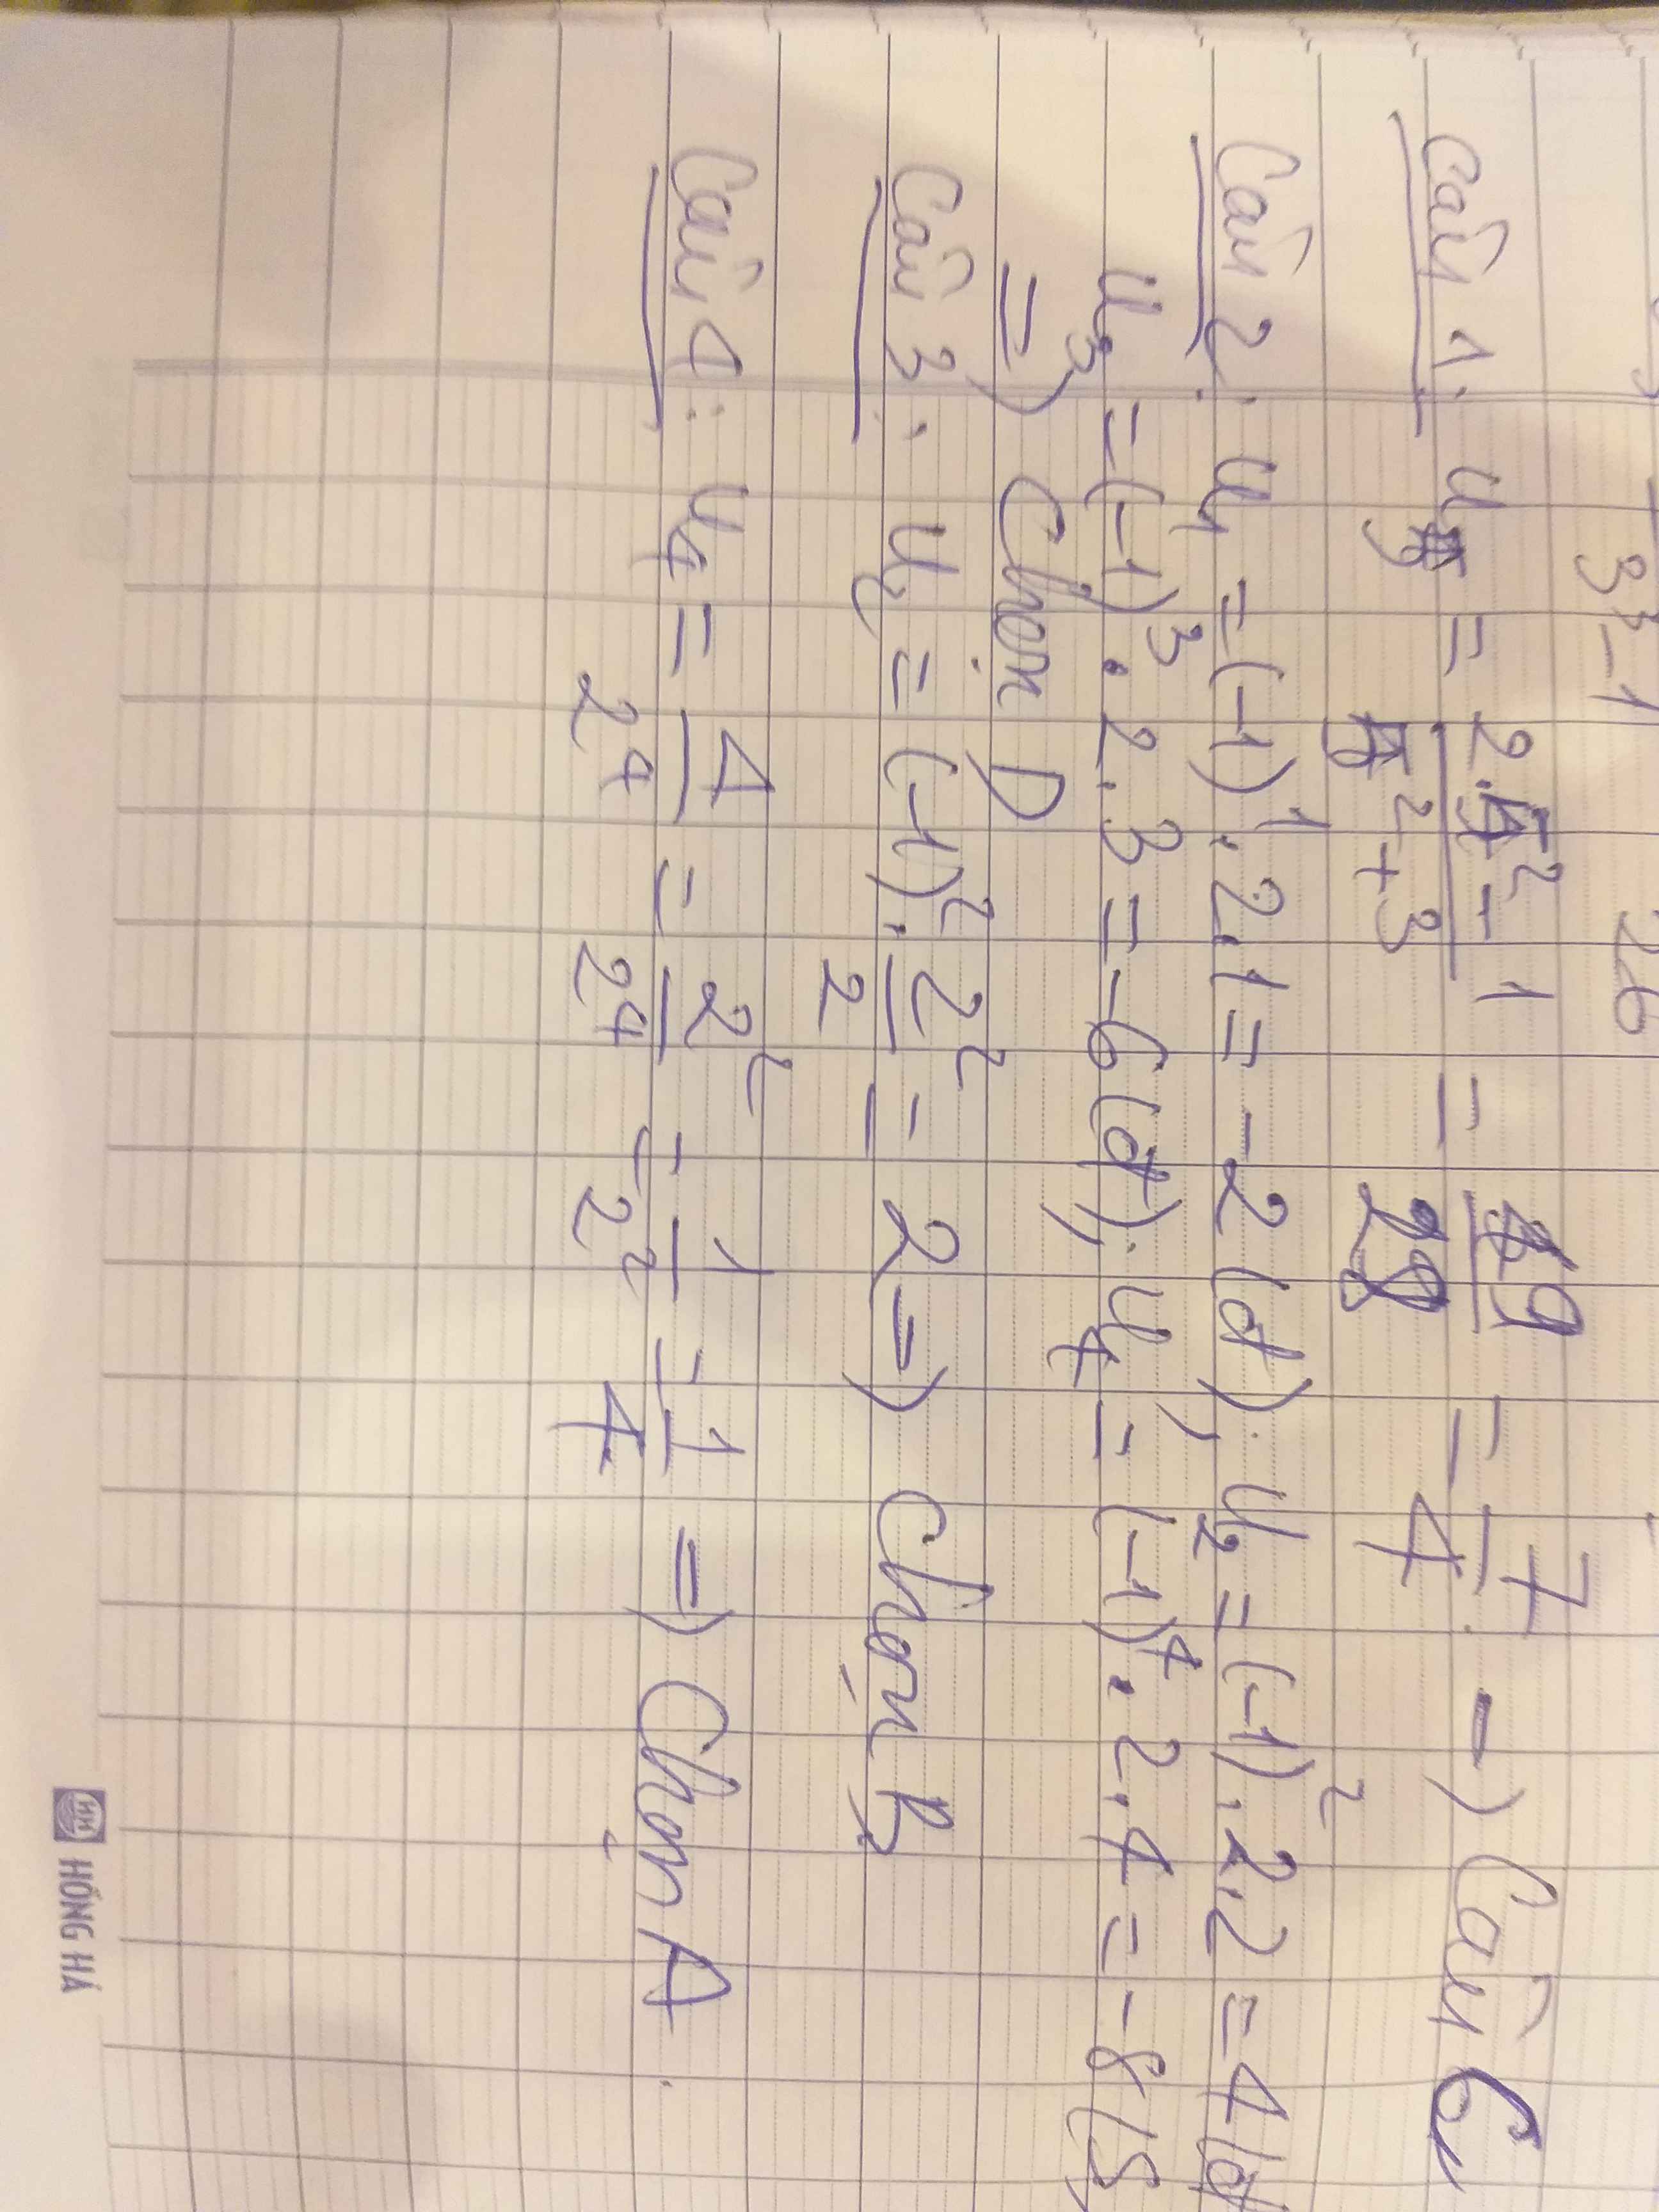 3³-1 26
Câu 1: u₅ = 2.5²-1/5²+3 = 49/28 = 7/4. => Câu C
Câu 2: u₁ = (-1)¹.2.1 = -2 (đ); u₂ = (-1)².2.2 = 4 (đ
u₃ = (-1)³.2.3 = -6 (đ); u₄ = (-1)⁴.2.4 = -8 (S
=) Chọn D
Câu 3: u₂ = (-1)².2²/2 = 2 =) Chọn B
Câu 4: u₄ = 4/2⁴ = 2²/2⁴ = 1/2² = 1/4 =) Chọn A.
HỒNG HÀ